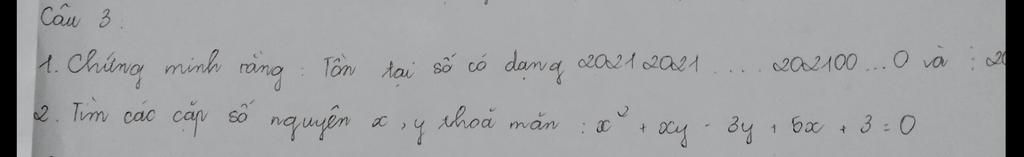 Câu 3.
1. Chứng minh rằng: Tồn tại số có dạng 20212021....202100...0 và : 20
2. Tìm các cặp số nguyên x, y thoả mãn : x² + xy - 3y + 5x + 3 = 0